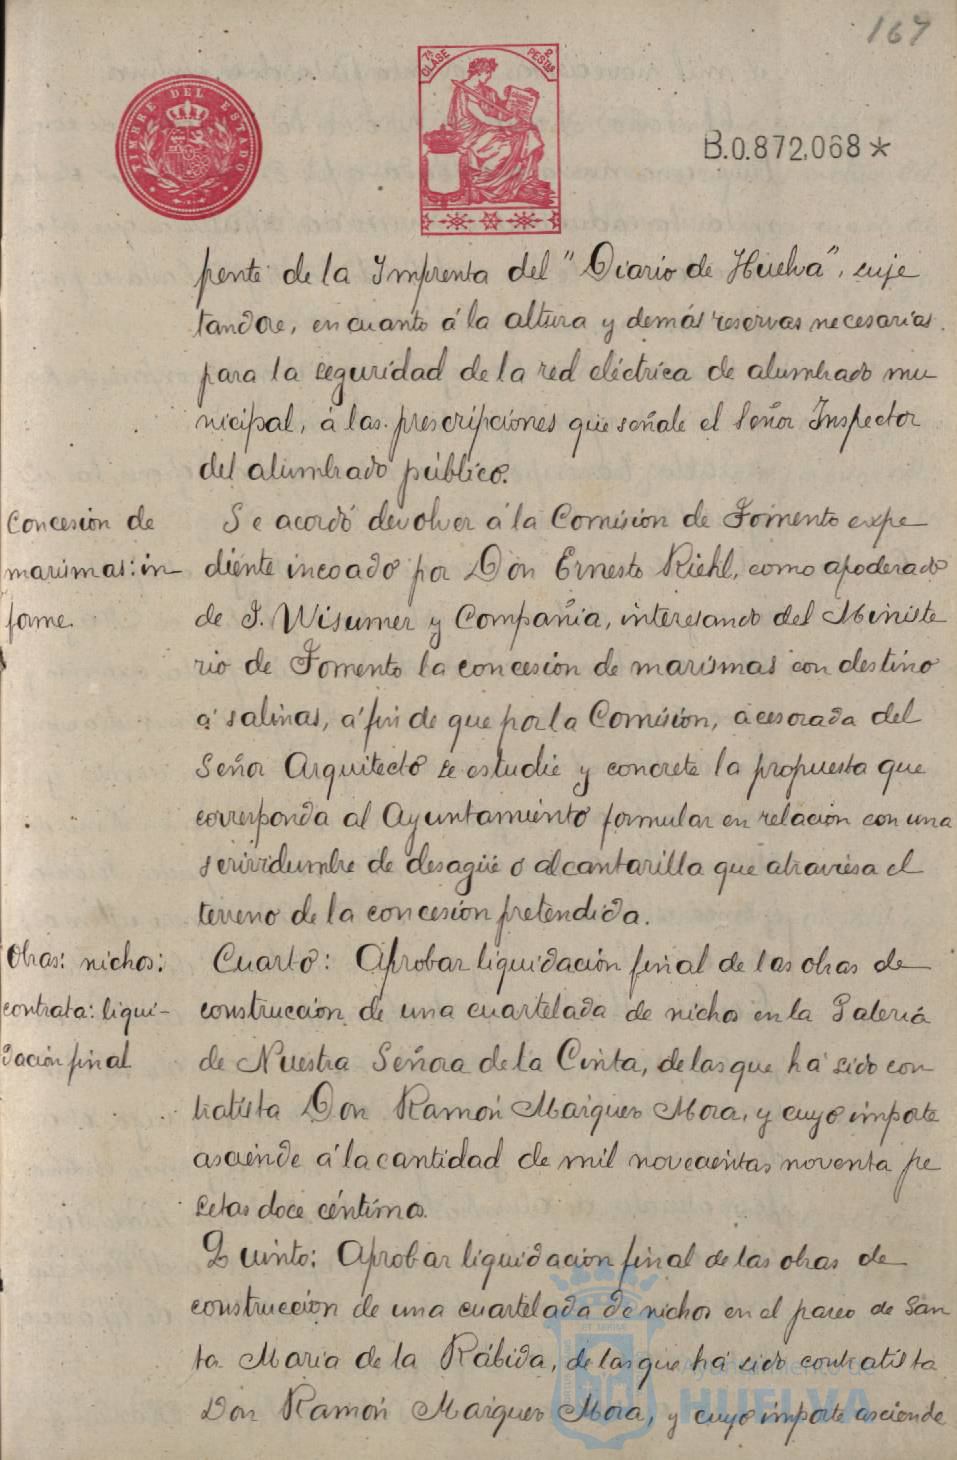 167
TIMBRE DEL ESTADO
7ª CLASE
2 PESTAS
B.0.872,068*
pente de la Imprenta del "Diario de Huelva", suje
tandose, en cuanto á la altura y demás reservas necesarias
para la seguridad de la red eléctrica de alumbrado mu
nicipal, á las prescripciones que señale el Señor Inspector
del alumbrado público.
Concesion de
marismas: in-
forme.
Se acordó devolver á la Comisión de Fomento expe
diente incoado por Don Ernesto Riehl, como apoderado
de J. Wisumer y Compañia, interesando del Ministe
rio de Fomento la concesión de marismas con destino
á salinas, á fin de que por la Comisión, acesorada del
Señor Arquitecto se estudie y concrete la propuesta que
corresponda al Ayuntamiento formular en relación con una
servidumbre de desagüe ó alcantarilla que atraviesa el
terreno de la concesión pretendida.
Obras: nichos:
contrata: liqui-
dación final
Cuarto: Aprobar liquidación final de las obras de
construccion de una cuartelada de nichos en la Galeria
de Nuestra Señora de la Cinta, de las que há sido con
tratista Don Ramón Maiquez Mora, y cuyo importe
asciende á la cantidad de mil novecientas noventa pe
setas doce céntimos.
Quinto: Aprobar liquidación final de las obras de
construcción de una cuartelada de nichos en el paseo de San
ta María de la Rábida, de las que há sido contratista
Don Ramón Maiquez Mora, y cuyo importe asciende
Ayuntamiento de
HUELVA